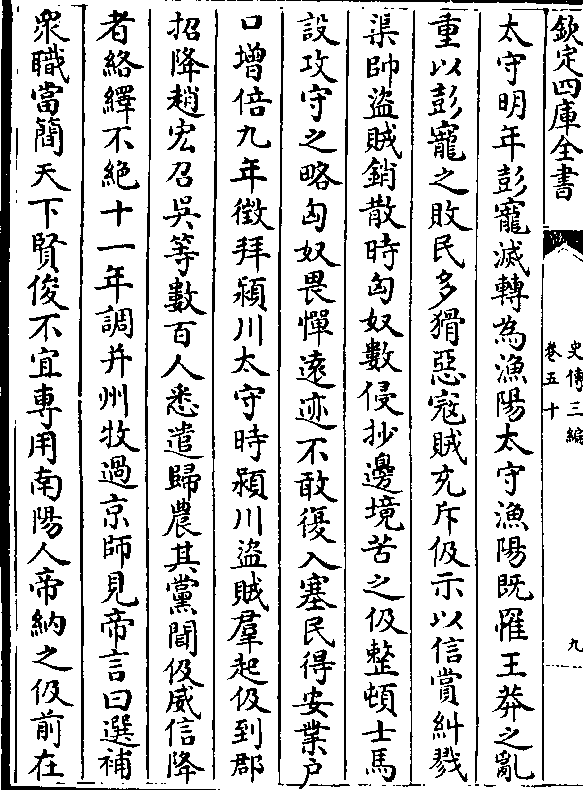 欽定四庫全書
史傳三編
卷五十
九
太守明年彭寵滅轉為漁陽太守漁陽既罹王莽之亂
重以彭寵之敗民多猾惡寇賊充斥伋示以信賞糾戮
渠帥盜賊銷散時匈奴數侵抄邊境苦之伋整頓士馬
設攻守之略匈奴畏憚遠迹不敢復入塞民得安業户
口增倍九年徵拜潁川太守時潁川盜賊羣起伋到郡
招降趙宏召吳等數百人悉遣歸農其黨聞伋威信降
者絡繹不絶十一年調并州牧過京師見帝言曰選補
衆職當簡天下賢俊不宜專用南陽人帝納之伋前在